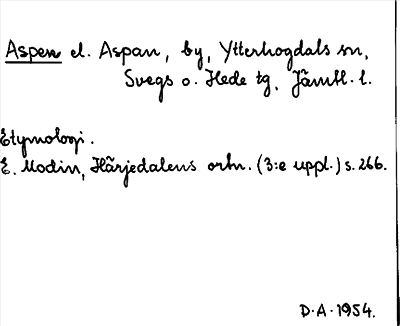 Aspen el. Aspan, by, Ytterhogdals sn,
Svegs o. Hede tg, Jämtl. l.
Etymologi.
E. Modin, Härjedalens ortn. (3:e uppl.) s. 266.
D.A. 1954.